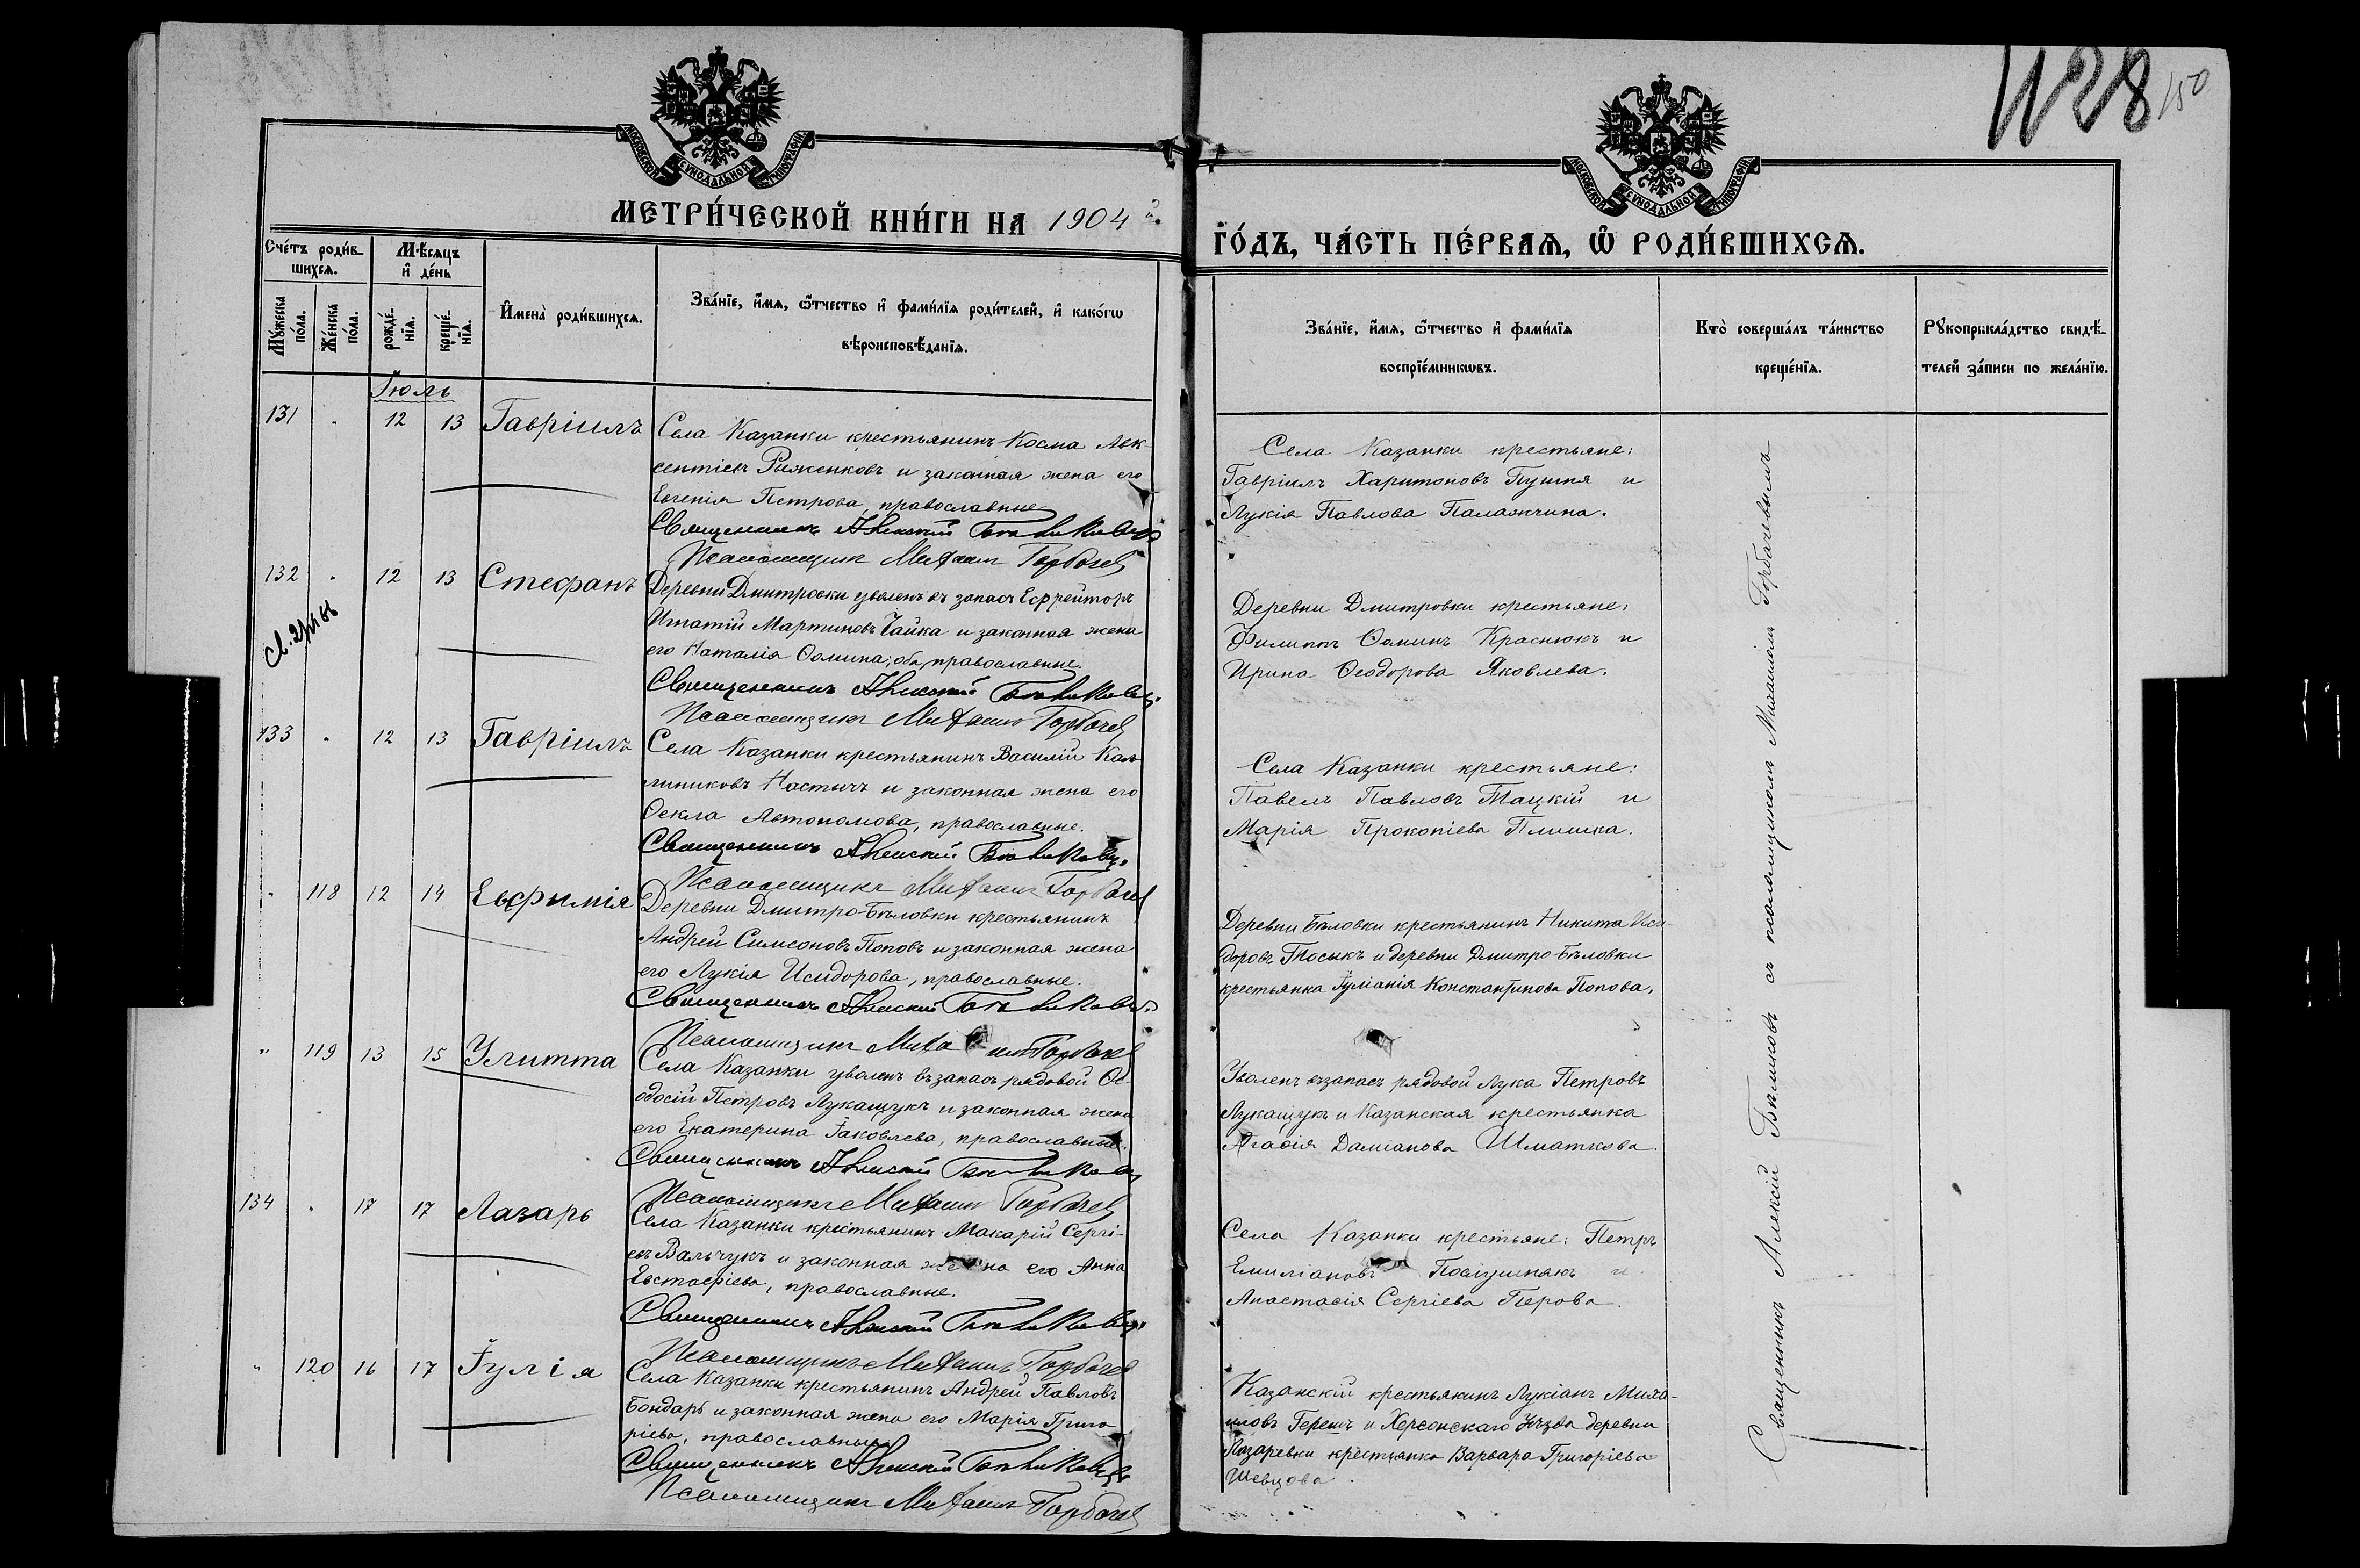 1128 150
МОСКОВСКОЙ СѴНОДАЛЬНОЙ ТИПОГРАФІИ
МОСКОВСКОЙ СѴНОДАЛЬНОЙ ТИПОГРАФІИ
МЕТРИ́ЧЕСКОЙ КНИ́ГИ НА 1904 й
ГО́ДЪ, ЧА́СТЬ ПЕ́РВАѦ, Ѡ҆ РОДИ́ВШИХСѦ.
Сче́тъ роди́в-
шихсѧ.
Мꙋ́жеска по́ла.
Же́нска по́ла.
Мѣ́сѧцъ
и҆ де́нь
рожде́-
нїѧ.
креще́-
нїѧ.
И҆мена̀ роди́вшихсѧ.
Зва́нїе, и҆́мѧ, ѻ҆́тчество и҆ фами́лїѧ роди́телей, и҆ како́гѡ
вѣроисповѣ́данїѧ.
Зва́нїе, и҆́мѧ, ѻ҆́тчество и҆ фами́лїѧ
воспрїе́мникѡвъ.
Кто̀ соверша́лъ та́инство
креще́нїѧ.
Рꙋкоприкла́дство свидѣ́-
телей за́писи по жела́нїю.
Іюль
131 12 13 Гавріилъ
Села Казанки крестьянинъ Косма Авк-
сентіевъ Рыженковъ и законная жена его
Евгенія Петрова, православные
Священникъ Алексій Бѣликовъ
Псаломщикъ Михаилъ Горбачев
Села Казанки крестьяне:
Гавріилъ Харитоновъ Пушня и
Лукія Павлова Паламчина.
132 12 13 Стефанъ
Деревни Дмитровки уволенъ въ запасъ Ефрейторъ
Игнатій Мартиновъ Чайка и законная жена
его Наталія Ѳомина, оба православные.
Священникъ Алексій Бѣликовъ.
Псаломщикъ Михаилъ Горбачев
Деревни Дмитровки крестьяне:
Филиппъ Ѳоминъ Краснюкъ и
Ирина Ѳеодорова Яковлева.
133 12 13 Гавріилъ
Села Казанки крестьянинъ Василій Кал-
линиковъ Настычъ и законная жена его
Ѳекла Автономова, православные.
Священникъ Алексій Бѣликовъ.
Псаломщикъ Михаилъ Горбачев
Села Казанки крестьяне:
Павелъ Павловъ Мацкій и
Марія Прокопіева Плишка.
" 118 12 14 Евфимія
Деревни Дмитро-Бѣловки крестьянинъ
Андрей Симеоновъ Поповъ и законная жена
его Лукія Исидорова, православные.
Священникъ Алексій Бѣликовъ.
Псаломщикъ Михаилъ Горбачев
Деревни Бѣловки крестьянинъ Никита Иси-
доровъ Носыкъ и деревни Дмитро-Бѣловки
крестьянка Іуліанія Константинова Попова.
" 119 13 15 Улитта
Села Казанки уволенъ въ запасъ рядовой Ѳе-
одосій Петровъ Лукащукъ и законная жена
его Екатерина Іаковлева, православные.
Священникъ Алексій Бѣликовъ
Псаломщикъ Михаилъ Горбачев
Уволенъ въ запасъ рядовой Лука Петровъ
Лукащукъ и Казанская крестьянка
Агаѳія Даміанова Шматкова.
134 17 17 Лазарь
Села Казанки крестьянинъ Макарій Сергі-
евъ Вальчукъ и законная жена его Анна
Евстафіева, православные.
Священникъ Алексій Бѣликовъ.
Псаломщикъ Михаилъ Горбачев
Села Казанки крестьяне: Петръ
Емиліановъ и
Анастасія Сергіева Перова.
" 120 16 17 Іулія
Села Казанки крестьянинъ Андрей Павловъ
Бондарь и законная жена его Марія Григо-
ріева, православные.
Священникъ Алексій Бѣликовъ
Псаломщикъ Михаилъ Горбачев
Казанскій крестьянинъ Лукіанъ Миха-
иловъ и Херсонскаго уѣзда деревни
Лазаревки крестьянка Варвара Григоріева
Шевцова.
Священникъ Алексій Бѣликовъ съ псаломщикомъ Михаиломъ Горбачевымъ